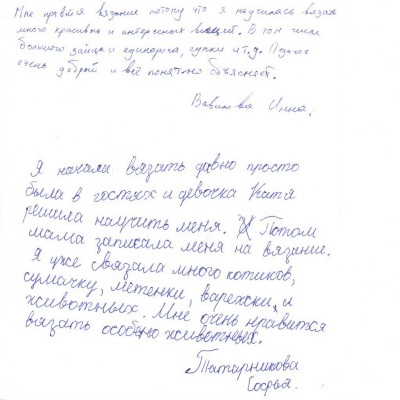 Мне нравится вязание потому что я научилась вязать
много красивых и интересных вещей. В том числе
большого зайца и единорога, сумки и т.д. Педагог
очень добрый и всё понятно объясняет.
Вавилова Инна.
Я начала вязать давно просто
была в гостях и девочка Катя
решила научить меня. Потом
мама записала меня на вязание.
Я уже связала много котиков,
сумачку, метенки, варежки, и
животных. Мне очень нравится
вязать особено животных.
Татарникова
Софья.